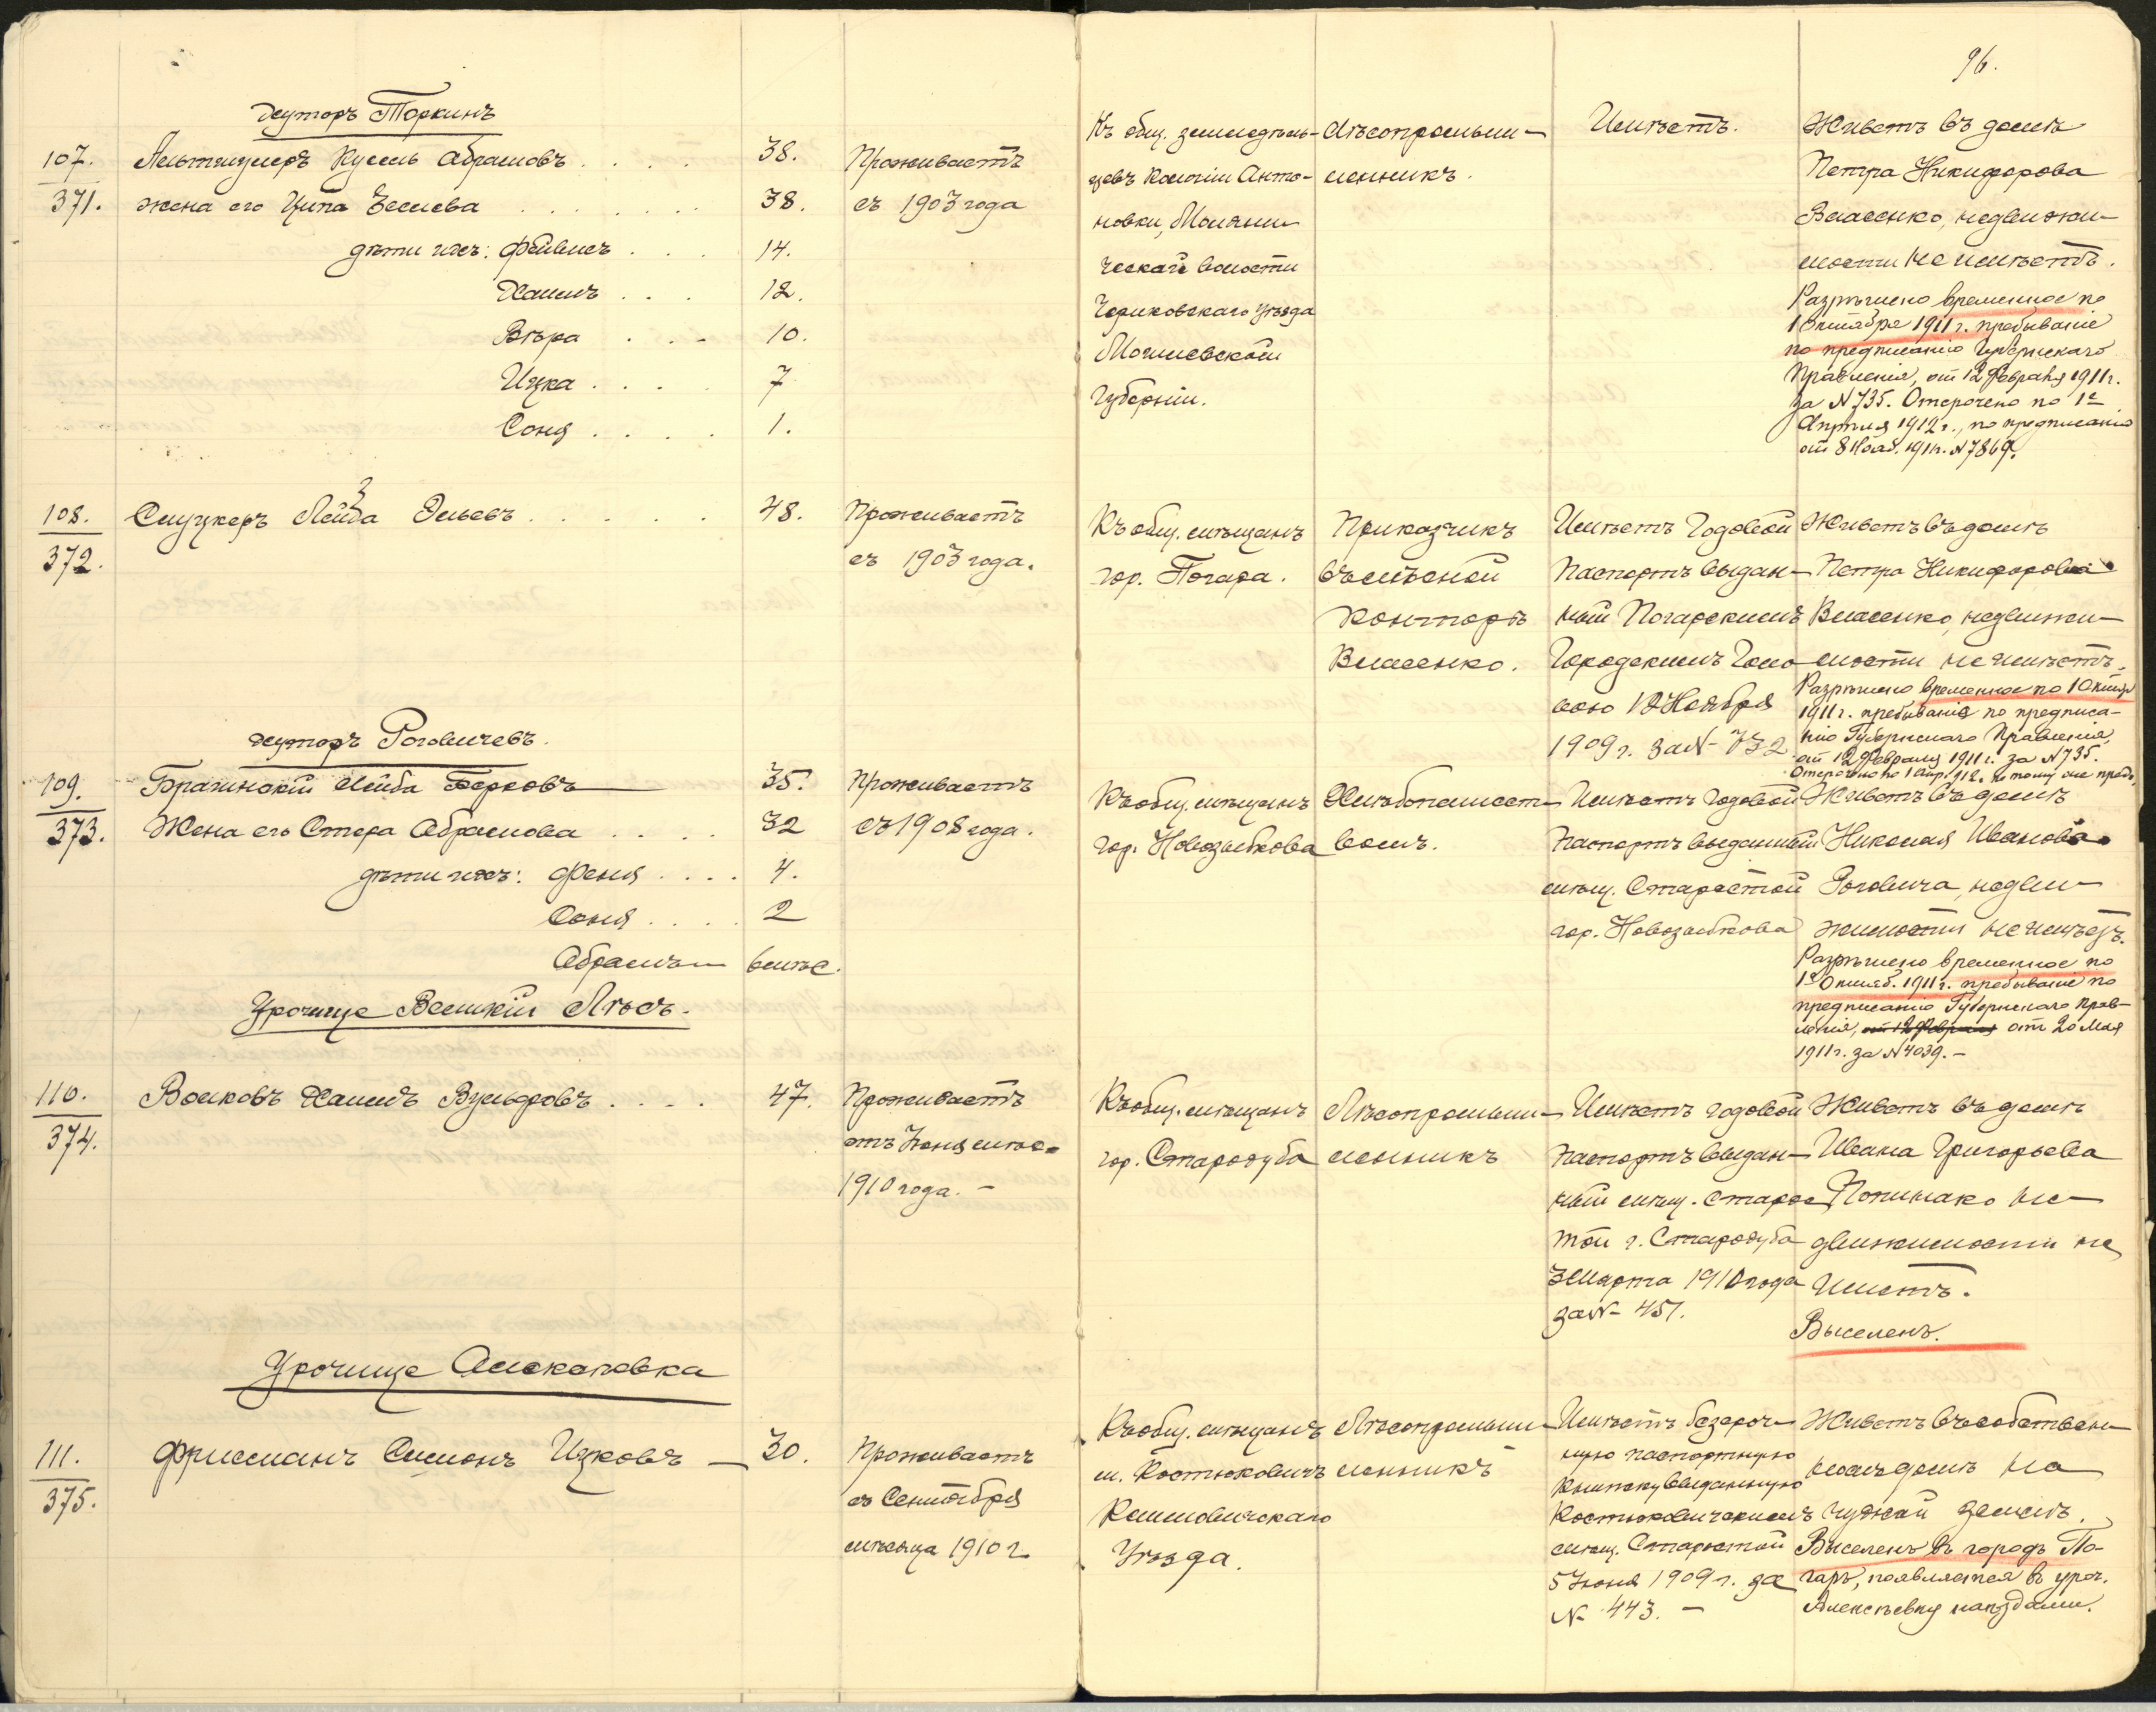 96.
Хуторъ Торкинъ
107.
371.
Альтшулеръ Кусель Абрамовъ . . . .
38.
Проживаетъ
жена его Ципа Зеслева . . . . . .
38.
съ 1903 года
дѣти ихъ: Фейвисъ . . .
14.
Хаимъ . . .
12.
Вѣра . . .
10.
Ицка . . . .
7
Соня . . . .
1.
Къ общ. земледѣль-
цевъ Колоніи Анто-
новки,
ческой волости
Чериковскаго уѣзда
Могилевской
Губерніи.
Лѣсопромыш-
ленникъ.
Имѣетъ.
Живетъ въ домѣ
Петра Никифорова
Власенко, недвижи-
мости не имѣетъ.
Разрѣшено временное по
1 Октября 1911 г. пребываніе
по предписанію Губернскаго
Правленія, от 12 Февраля 1911 г.
за № 735. Отсрочено по 1е
Апрѣля 1912 г., по предписанію
от 8 Нояб. 1911 г. № 7869.
108.
372.
Слуцкеръ Лейба Эльевъ . . . . .
48.
Проживаетъ
съ 1903 года.
Къ общ. мѣщанъ
гор. Погара.
Приказчикъ
въ лѣсной
конторѣ
Власенко.
Имѣетъ Годовой
паспортъ выдан-
ный Погарскимъ
Городскимъ Голо-
вою 12 Ноября
1909 г. за № 732
Живетъ въ домѣ
Петра Никифорова
Власенко, недвижи-
мости не имѣетъ.
Разрѣшено временное по 1 Октяб
1911 г. пребываніе по предписа-
нію Губернскаго Правленія,
от 12 Февраля 1911 г. за № 735.
Отсрочено по 1 Апр. 912 г. по тому же предп.
Хуторъ Роговичевъ.
109.
373.
Брагинскій Лейба Берковъ
35.
Проживаетъ
Жена его Стера Абрамова . . . .
32
съ 1908 года.
дѣти ихъ: Феня . . . .
4.
Соня . . . .
2
Абрамъ —
6 мѣс.
Къ общ. мѣщанъ
гор. Новозыбкова
Хлѣбопашест-
вомъ.
Имѣетъ годовой
паспортъ выданный
мѣщ. Старостой
гор. Новозыбкова
Живетъ въ домѣ
Николая Иванова
Роговича, недви-
жимости не имѣетъ.
Разрѣшено временное по
1е Октяб. 1911 г. пребываніе по
предписанію Губернскаго Прав-
ленія, от 12 Февраля от 20 Мая
1911 г. за № 4039. —
Урочище Великій Лѣсъ.
110.
374.
Волковъ Хаимъ Вульфовъ . . . .
47.
Проживаетъ
отъ Іюня мѣс.
1910 года. —
Къ общ. мѣщанъ
гор. Стародуба
Лѣсопромыш-
ленникъ
Имѣетъ годовой
паспортъ выдан-
ный мѣщ. старос
той г. Стародуба
3 Марта 1910 года
за № 451.
Живетъ въ домѣ
Ивана Григорьева
не-
движимости не
имѣетъ.
Выселенъ.
Урочище
111.
375.
Фрисманъ Симонъ Ицковъ —
30.
Проживаетъ
съ Сентября
мѣсяца 1910 г.
Къ общ. мѣщанъ
м. Костюковичъ
Климовичскаго
Уѣзда.
Лѣсопромыш-
ленникъ
Имѣетъ безсроч-
ную паспортную
книжку выданную
Костюковичскимъ
мѣщ. Старостой
5 Іюня 1909 г. за
№ 443. —
Живетъ въ собствен-
номъ домѣ на
чужой землѣ.
Выселенъ въ городъ По-
гаръ, появляется в уроч.
Алексѣевку наѣздами.